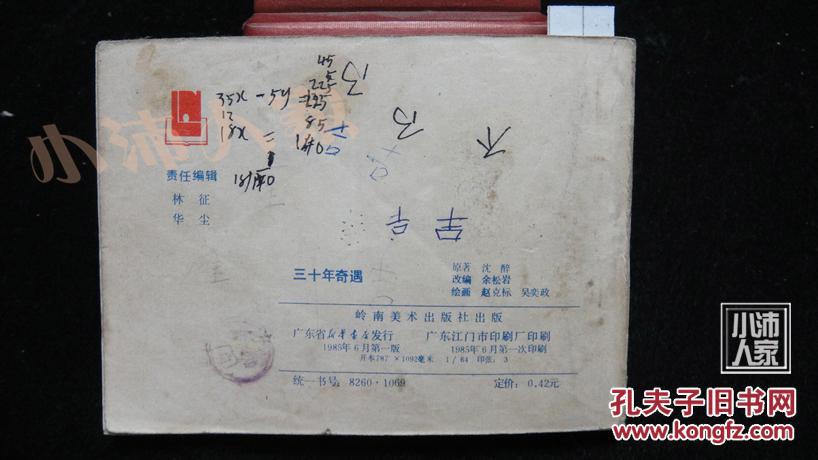 35x - 5y =
18x =
责任编辑
林 征
华 尘
三十年奇遇
原著 沈 醉
改编 余松岩
绘画 赵克标 吴奕政
岭南美术出版社出版
广东省新华书店发行 广东江门市印刷厂印刷
1985年6月第一版 1985年6月第一次印刷
开本787×1092毫米 1/64 印张:3
统一书号:8260·1069 定价:0.42元
小沛人家
小沛人家
孔夫子旧书网
KONGFZ.COM